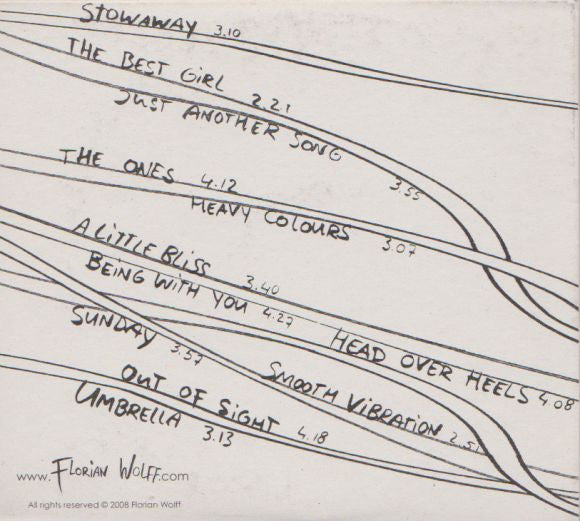 STOWAWAY 3.10
THE BEST GIRL 2.21
JUST ANOTHER SONG 3.55
THE ONES 4.12
HEAVY COLOURS 3.07
A LITTLE BLISS 3.40
BEING WITH YOU 4.27
HEAD OVER HEELS 4.08
SUNDAY 3.57
SMOOTH VIBRATION 2.51
OUT OF SIGHT 4.18
UMBRELLA 3.13
www.FLORIAN WOLFF.com
All rights reserved © 2008 Florian Wolff